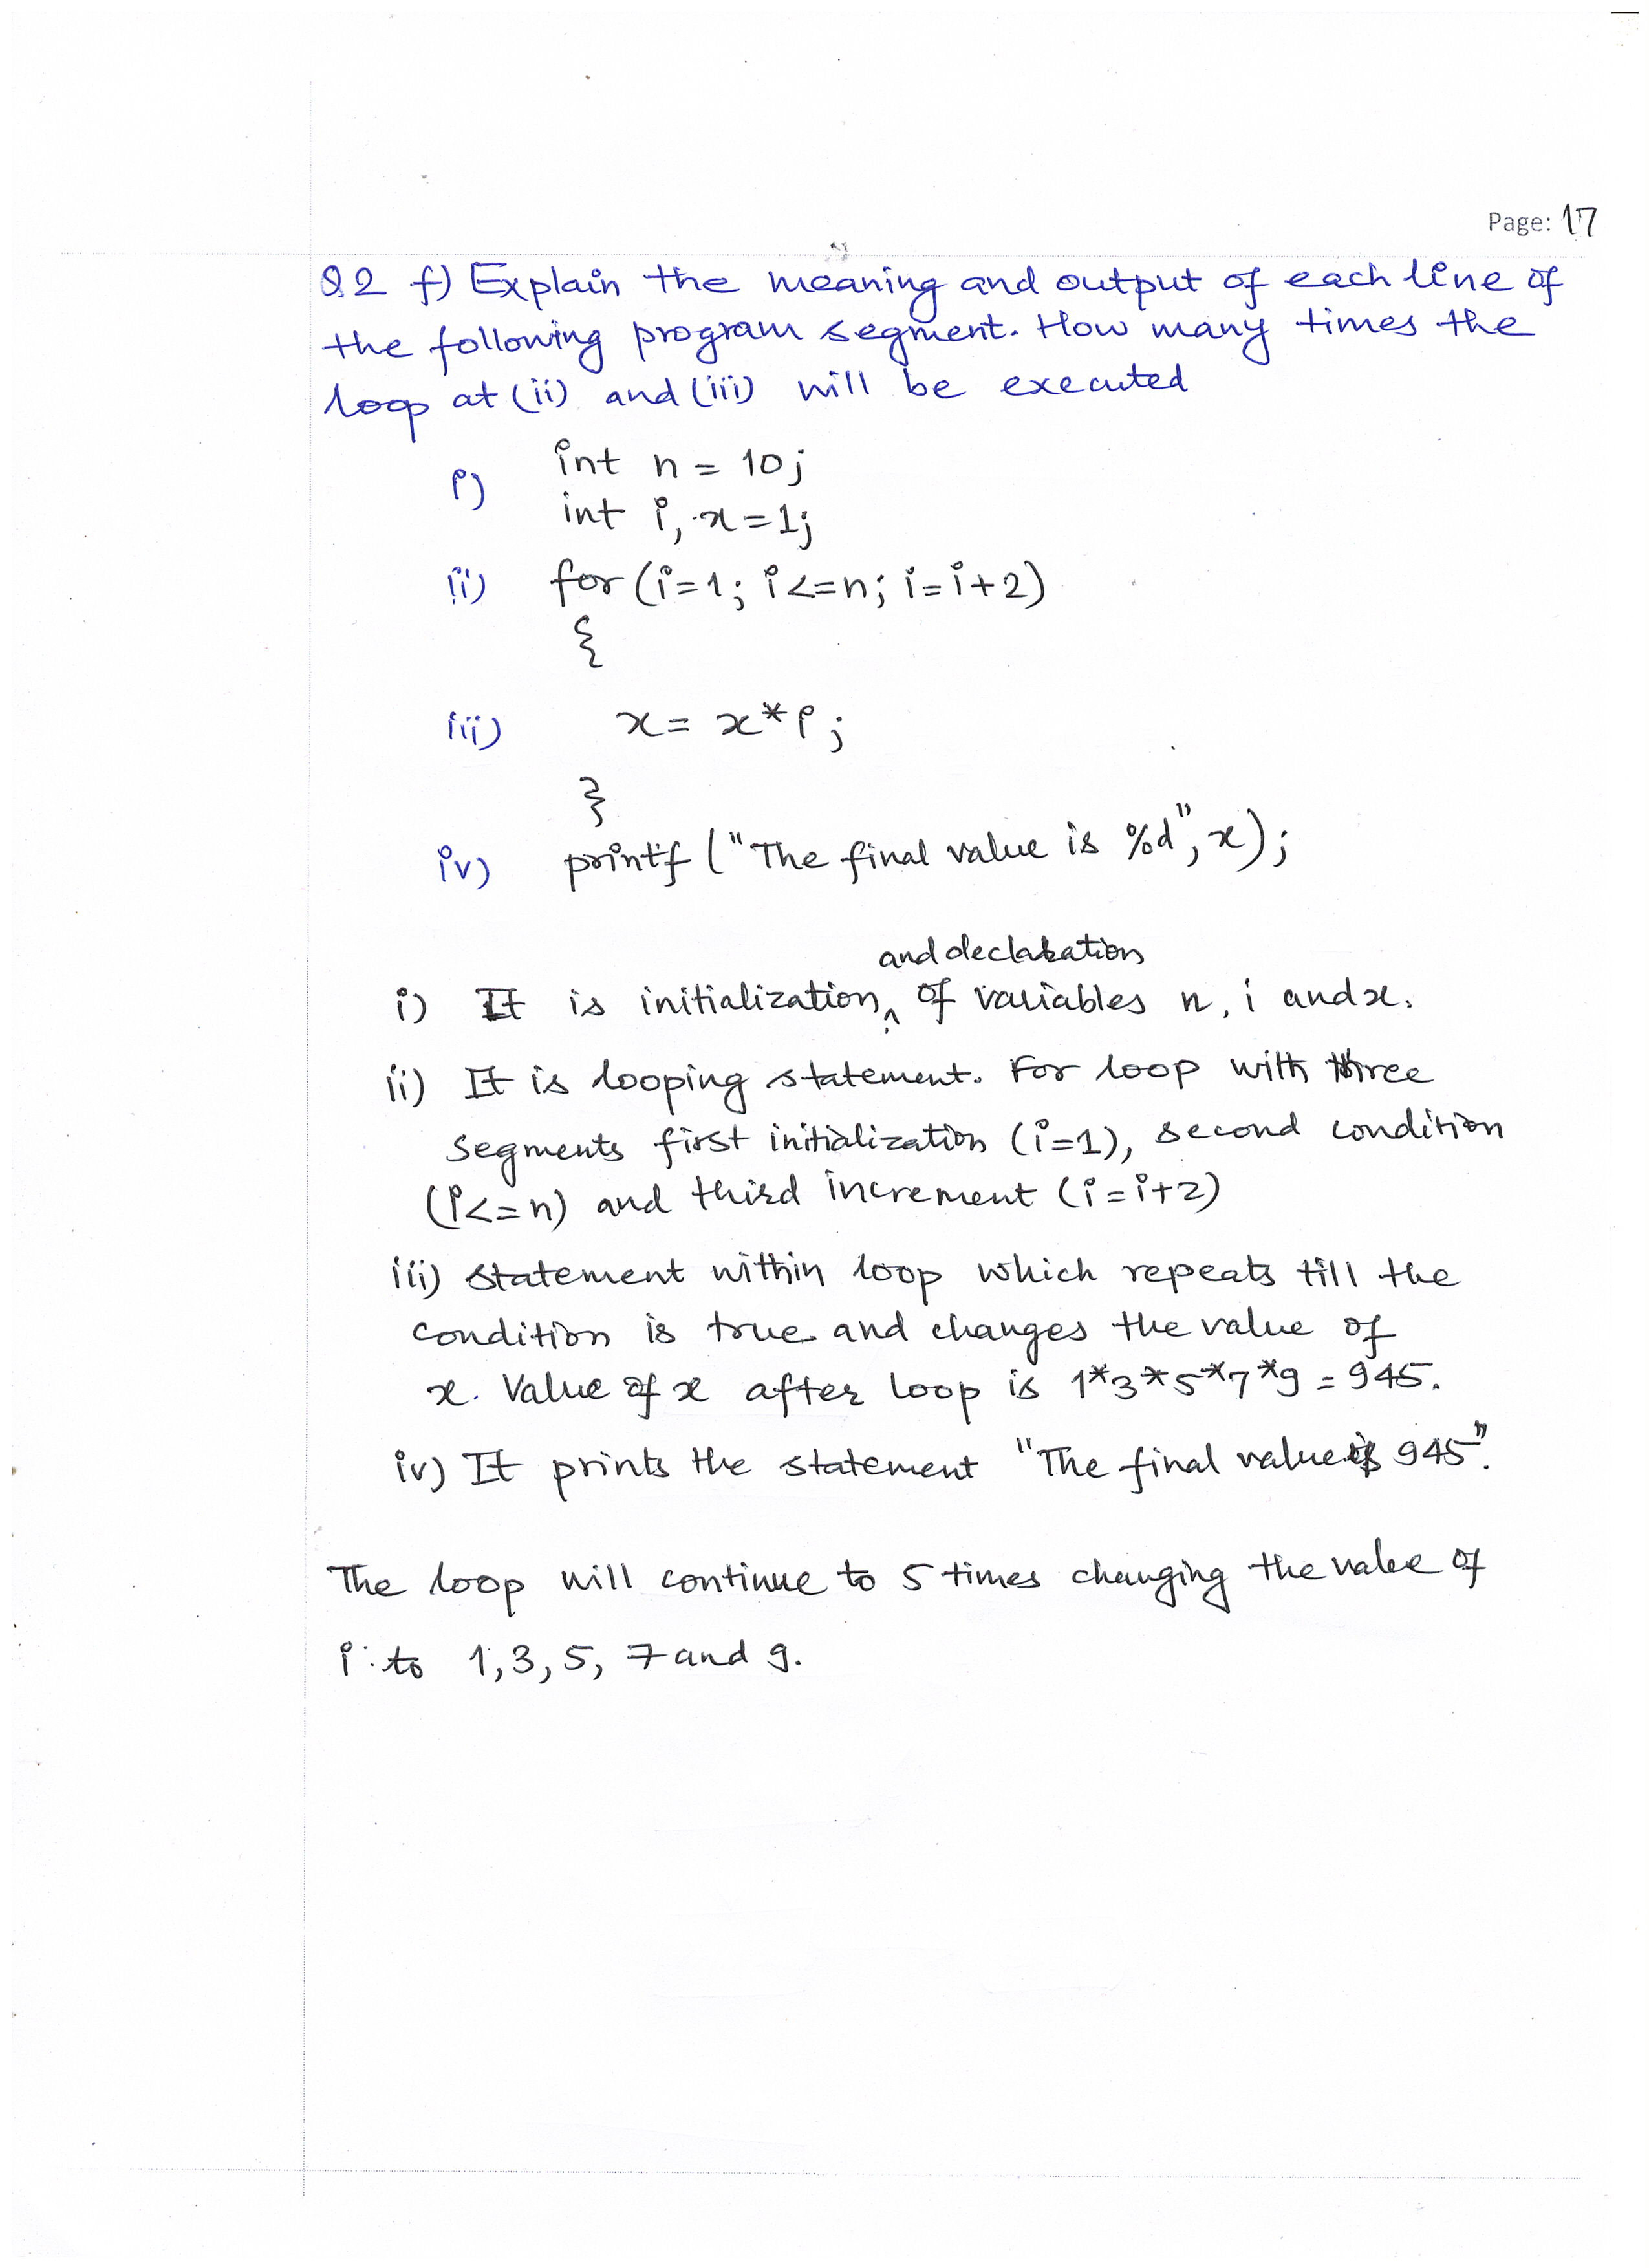 Page: 17
Q2 f) Explain the meaning and output of each line of
the following program segment. How many times the
loop at (ii) and (iii) will be executed
int n = 10;
i)
int i, x=1;
ii) for (i=1; i<=n; i=i+2)
{
iii) x = x*i;
}
iv) printf ("The final value is %d", x);
and declaration
i) It is initialization ^ of variables n, i and x.
ii) It is looping statement. For loop with three
segments first initialization (i=1), second condition
(i<=n) and third increment (i=i+2)
iii) Statement within loop which repeats till the
condition is true and changes the value of
x. Value of x after loop is 1*3*5*7*9 = 945.
iv) It prints the statement "The final value is 945".
The loop will continue to 5 times changing the value of
i to 1,3,5, 7 and 9.